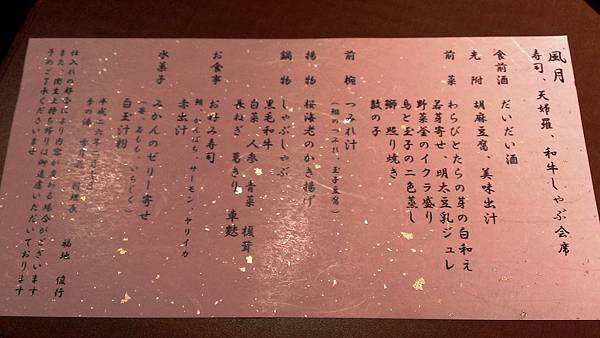 風月
寿司、天婦羅、和牛しゃぶ会席
食前酒 だいだい酒
先附 胡麻豆腐、美味出汁
前菜 わらびとたらの芽の白和え
若芽寄せ、明太豆乳ジュレ
野菜釜のイクラ盛り
鳥と玉子の二色蒸し
鰤照り焼き
数の子
前椀 つみれ汁
(鰯つみれ、玉子豆腐)
揚物 桜海老のかき揚げ
鍋物 しゃぶしゃぶ
黒毛和牛
白菜 人参 青菜 榎茸
長ねぎ 葛きり 車麩
お食事 お好み寿司
鯛、かんぱち、サーモン、ヤリイカ
赤出汁
水菓子 みかんのゼリー寄せ
白玉汁粉
(苺、いちじく)
平成二六年
季の倶 料理長 福地 俊行
仕入れの都合により内容が変わる場合がございます
また、衛生上持ち帰りは御遠慮いただいております
予めご了承くださいませ